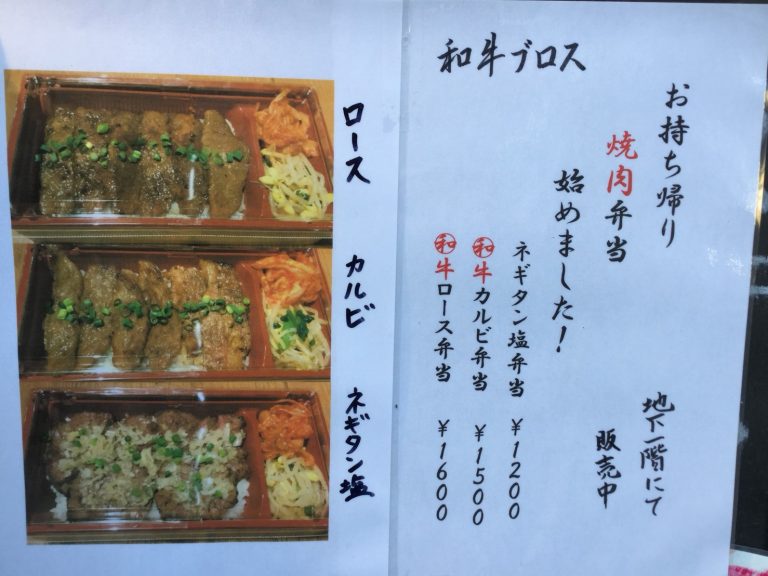 和牛ブロス
お持ち帰り
焼肉弁当
始めました！
ネギタン塩弁当 ¥1200
㊒和牛カルビ弁当 ¥1500
和牛ロース弁当 ¥1600
地下一階にて
販売中
ロース
カルビ
ネギタン塩